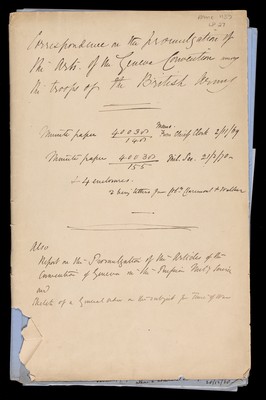 Correspondence on the promulgation of
the Arts. of the Geneva Convention among
the troops of the British Army
Minute paper 40030/145 from Chief Clerk
Minute paper 40030/155 Mil. Sec.
& 4 enclosures.
2 letters from
Also
Report on the Promulgation of the Articles of the
Convention of Geneva in the Prussian
and
Sketch of a General Order on the subject for Time of War